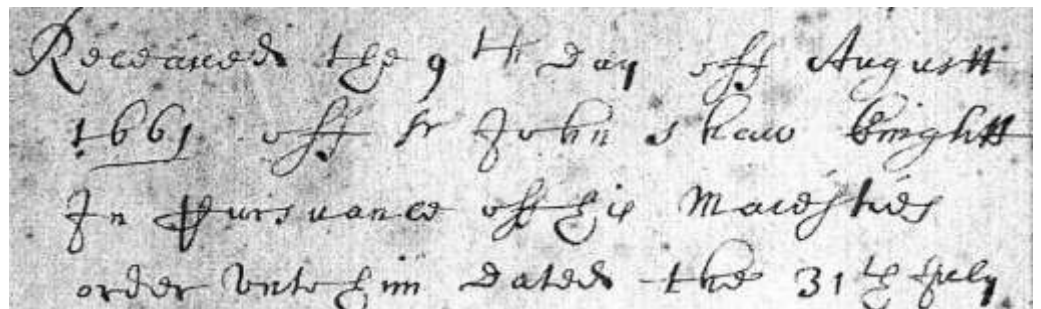 Receaued the 9th day off Augustt
1661 off Sr John Shaw knightt
In Pursuance off his Maiesties
order vnto him dated the 31th July